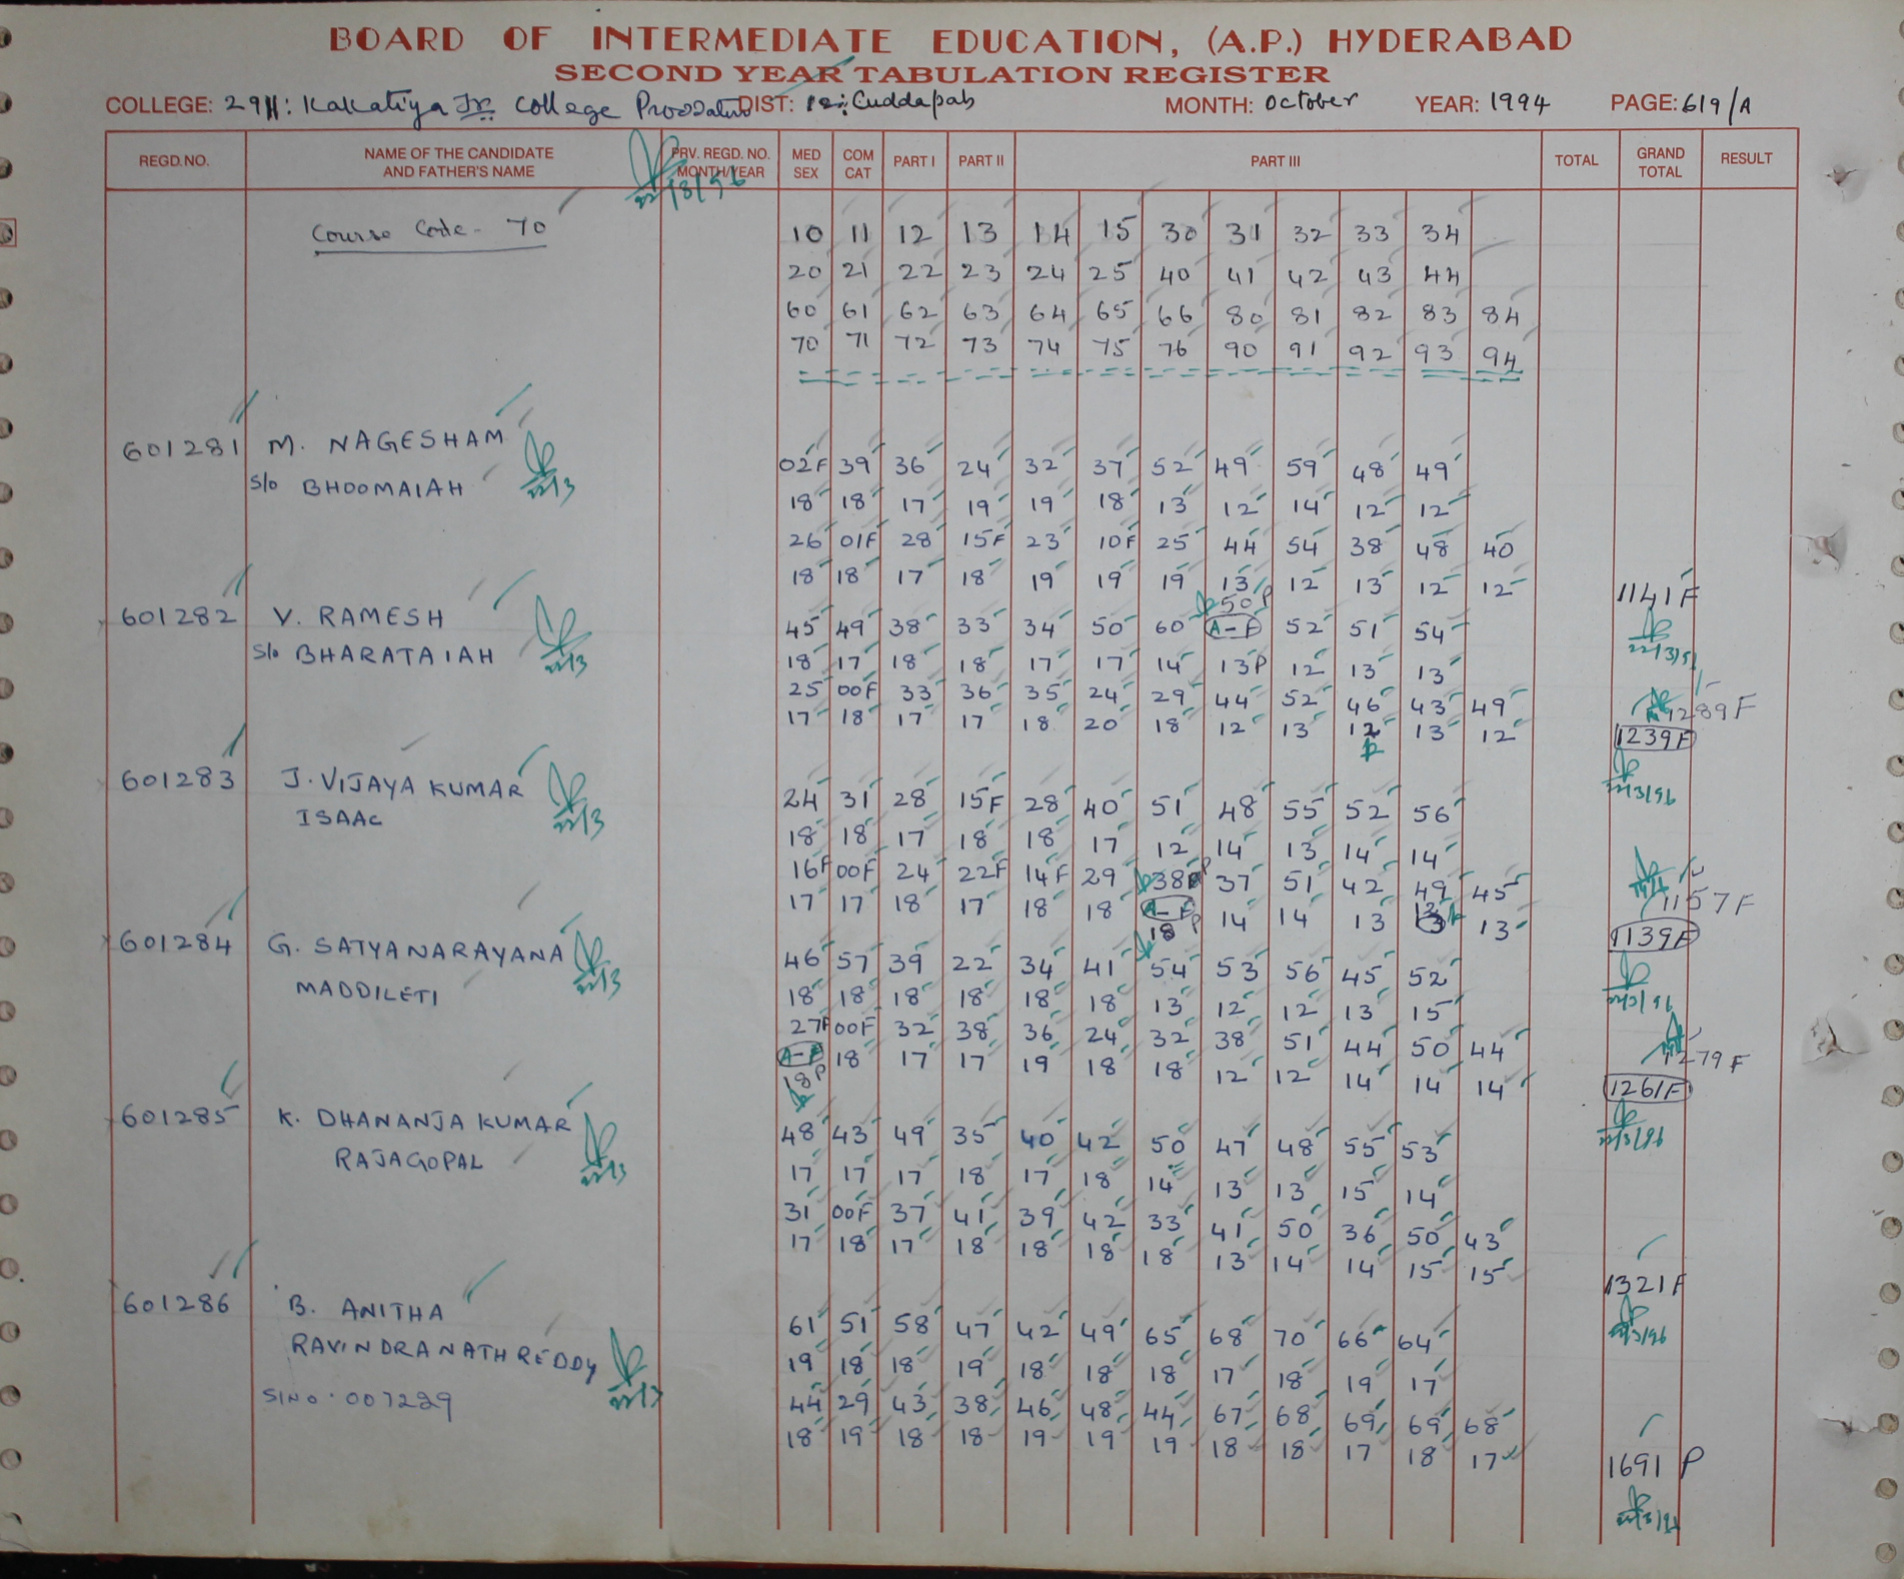 BOARD OF INTERMEDIATE EDUCATION, (A.P.) HYDERABAD
SECOND YEAR TABULATION REGISTER
COLLEGE: 291: Kakatiya Jr. College DIST: 12: Cuddapah MONTH: October YEAR: 1994 PAGE: 619/A
REGD.NO. NAME OF THE CANDIDATE AND FATHER'S NAME PRV. REGD. NO. MONTH/YEAR MED SEX COM CAT PART I PART II PART III TOTAL GRAND TOTAL RESULT
22/3/96
Course Code - 70 10 11 12 13 14 15 30 31 32 33 34
20 21 22 23 24 25 40 41 42 43 44
60 61 62 63 64 65 66 80 81 82 83 84
70 71 72 73 74 75 76 90 91 92 93 94
601281 M. NAGESHAM 02F 39 36 24 32 37 52 49 59 48 49
S/o BHOOMAIAH 22/3 18 18 17 19 19 18 13 12 14 12 12
26 01F 28 15F 23 10F 25 44 54 38 48 40
18 18 17 18 19 19 19 13 12 13 12 12 1141F
50P
601282 V. RAMESH 45 49 38 33 34 50 60 A-F 52 51 54
S/o BHARATAIAH 22/3 18 17 18 18 17 17 14 13P 12 13 13
25 00F 33 36 35 24 29 44 52 46 43 49 1289F
17 18 17 17 18 20 18 12 13 12 13 12 1239F
22/3/96
601283 J. VIJAYA KUMAR 24 31 28 15F 28 40 51 48 55 52 56
ISAAC 22/3 18 18 17 18 18 17 12 14 13 14 14
16F 00F 24 22F 14F 29 38 37 51 42 49 45 1157F
17 17 18 17 18 18 A-F 14 14 13 13 13 1139F
18P
601284 G. SATYANARAYANA 46 57 39 22 34 41 54 53 56 45 52
MADDILETI 22/3 18 18 18 18 18 18 13 12 12 13 15
27F 00F 32 38 36 24 32 38 51 44 50 44 1279F
A-F 18 17 17 19 18 18 12 12 14 14 14 1261F
18P
601285 K. DHANANJA KUMAR 48 43 49 35 40 42 50 47 48 55 53
RAJAGOPAL 22/3 17 17 17 18 17 18 14 13 13 15 14
22/3/96
31 00F 37 41 39 42 33 41 50 36 50 43
17 18 17 18 18 18 18 13 14 14 15 15 1321F
601286 B. ANITHA 61 51 58 47 42 49 65 68 70 66 64
RAVINDRANATH REDDY 19 18 18 19 18 18 18 17 18 19 17
Sl No. 007229 44 29 43 38 46 48 44 67 68 69 69 68
18 19 18 18 19 19 19 18 18 17 18 17 1691 P